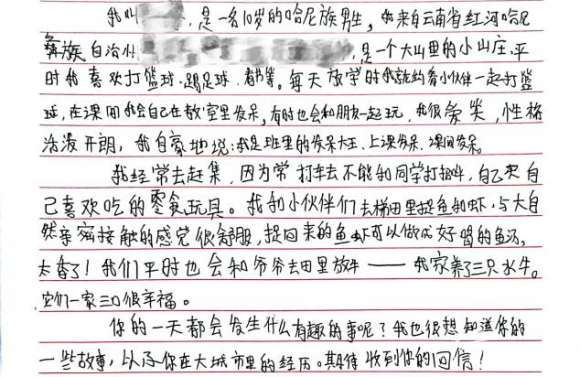 我叫 ，是一名10岁的哈尼族男生，我来自云南省红河哈尼
彝族自治州 ，是一个大山里的小山庄。平
时我喜欢打篮球、踢足球、看书等。每天放学时我就约着小伙伴一起打篮
球，在课间我会自己在教室里发呆，有时也会和朋友一起玩，我很爱笑，性格
活泼开朗，我自豪地说：我是班里的发呆大王，上课发呆、课间发呆。
我经常去赶集，因为常 去不能和同学打 ，自己买自
己喜欢吃的零食玩具。我和小伙伴们去梯田里捉鱼和虾，与大自
然亲密接触的感觉很舒服，捉回来的鱼虾可以做成好喝的鱼汤，
太香了！我们平时也会和爷爷去田里放牛——我家养了三只水牛。
它们一家三口很幸福。
你的一天都会发生什么有趣的事呢？我也很想知道你的
一些故事，以及你在大城市里的经历。期待收到你的回信！